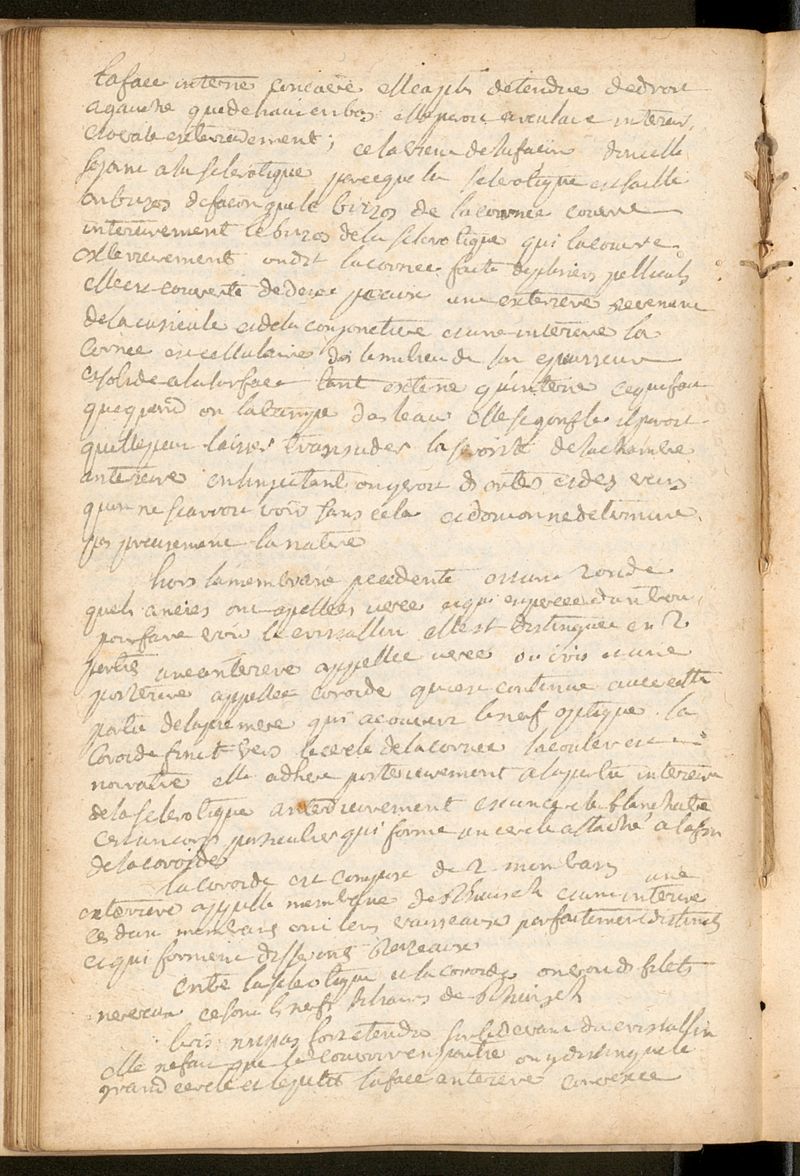 la face interne concave elle a plus detendue de droit
a gauche que de haut en bas elle paroit circulaire interieu,
et ovale exterieurement; cela vient de la facon dont elle
se joint a la sclerotique parceque la sclerotique est taillé
en bizos de facon que le bizos de la cornée couvre
interieurement le bizos de la sclerotique qui la couvre
exterieurement on dit la cornée faite de plusieurs pellicules
elle est couverte de deux peaux une exterieure
de la cuticule et de la conjonctive et une interieure la
cornée est cellulaire dans le milieu de son epaisseur
et solide a la surface tant externe qu'interne ce qui fait
que quand on la trempe dans leau elle se gonfle il paroit
quelle peut laisser transuder la serosité de la chambre
anterieure en linjectant on y voit des et des
quon ne scauroit voir sans cela et dont on ne determine
pas precisement la nature
hors la membrane precedente est une ronde
que les anciens ont appellée uvée et qui est percée dun trou
pour faire voir le cristallin elle est distinguée en 2
parties une anterieure appellée uvée ou iris et une
posterieure appellée coroide qui est continue avec cette
partie de la premiere qui a couvert le nerf optique la
Coroide finit vers le cercle de la cornée sa couleur est
noiratre elle adhere posterieurement a la partie interieure
de la sclerotique anterieurement est un cercle blanchatre
cest un corps particulier qui forme un cercle attaché a la fin
de la coroide
la coroide est composée de 2 membranes une
exterieure appelle membrane de Rhuisch et une interieure
ces deux membranes ont leurs vaisseaux parfaitement distincts
et qui forment differents Rezeaux
entre la sclerotique et la coroide on voit des filets
nerveux ce sont les nerfs de Rhuisch
liris nest pas fort etendu sur le devant du cristallin
elle ne fait que le couvrir en partie on y distingue le
grand cercle et le petit la face anterieure convexe